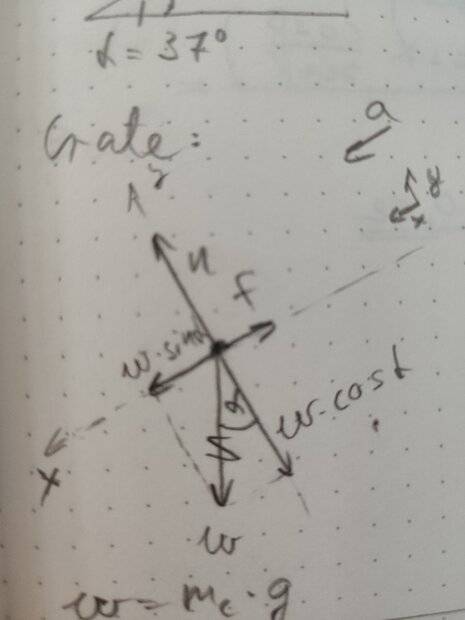 α = 37°
Crate:
a
y
y
x
n
f
w·sinα
w·cosα
α
x
w
w = mc·g